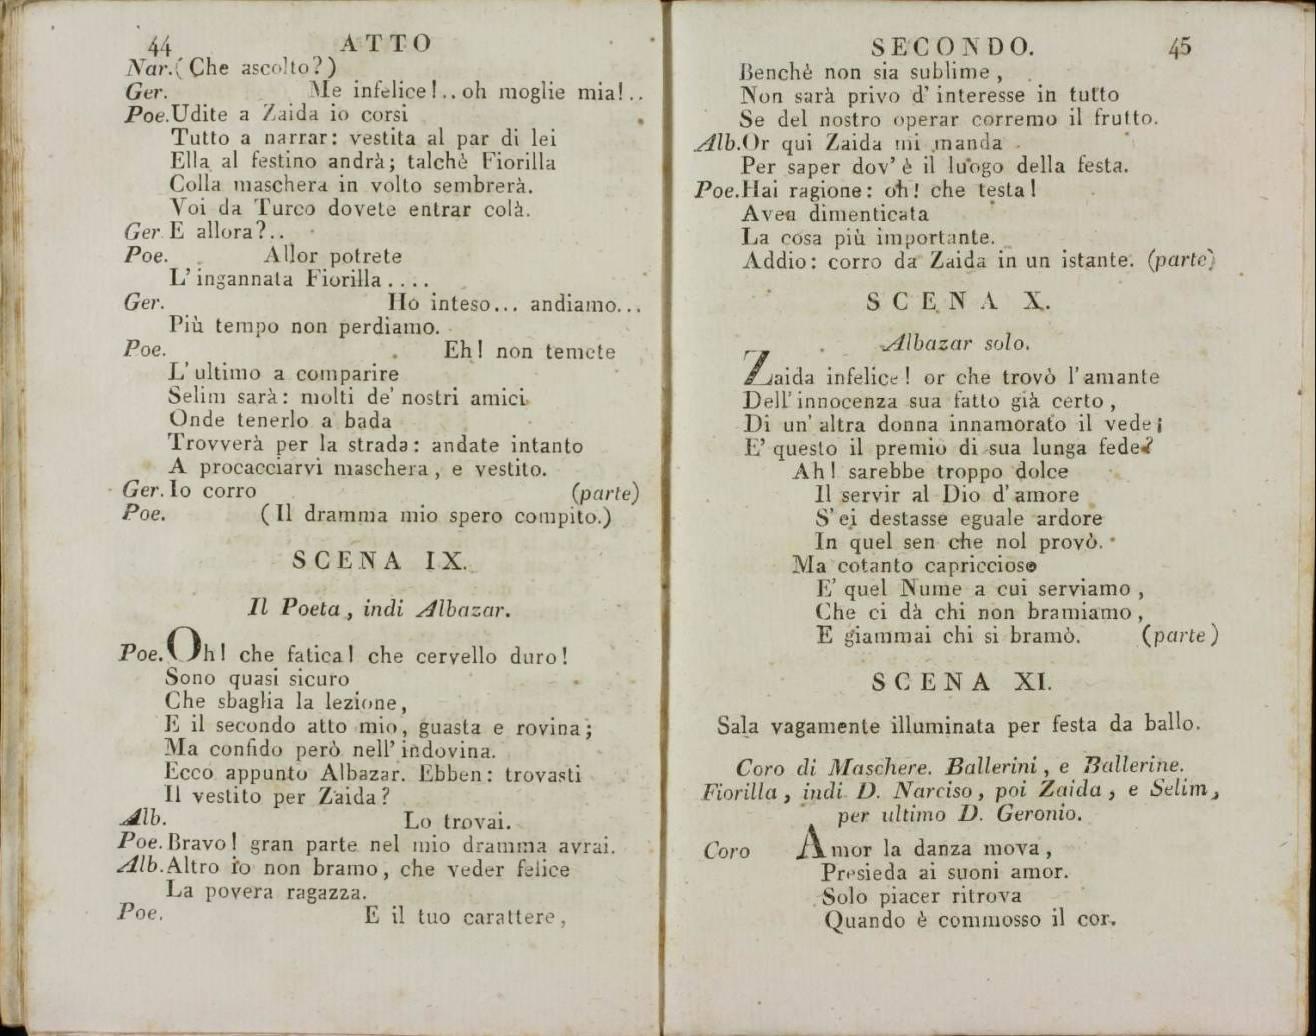 44 ATTO
Nar. (Che ascolto?)
Ger. Me infelice!.. oh moglie mia!..
Poe. Udite a Zaida io corsi
Tutto a narrar: vestita al par di lei
Ella al festino andrà; talchè Fiorilla
Colla maschera in volto sembrerà.
Voi da Turco dovete entrar colà.
Ger. E allora?..
Poe. Allor potrete
L' ingannata Fiorilla....
Ger. Ho inteso... andiamo...
Più tempo non perdiamo.
Poe. Eh! non temete
L' ultimo a comparire
Selim sarà: molti de' nostri amici
Onde tenerlo a bada
Trovverà per la strada: andate intanto
A procacciarvi maschera, e vestito.
Ger. Io corro (parte)
Poe. (Il dramma mio spero compito.)
SCENA IX.
Il Poeta, indi Albazar.
Poe. Oh! che fatica! che cervello duro!
Sono quasi sicuro
Che sbaglia la lezione,
E il secondo atto mio, guasta e rovina;
Ma confido però nell' indovina.
Ecco appunto Albazar. Ebben: trovasti
Il vestito per Zaida?
Alb. Lo trovai.
Poe. Bravo! gran parte nel mio dramma avrai.
Alb. Altro io non bramo, che veder felice
La povera ragazza.
Poe. E il tuo carattere,
SECONDO. 45
Benchè non sia sublime,
Non sarà privo d' interesse in tutto
Se del nostro operar corremo il frutto.
Alb. Or qui Zaida mi manda
Per saper dov' è il luogo della festa.
Poe. Hai ragione: oh! che testa!
Avea dimenticata
La cosa più importante.
Addio: corro da Zaida in un istante. (parte)
SCENA X.
Albazar solo.
Zaida infelice! or che trovò l' amante
Dell' innocenza sua fatto già certo,
Di un' altra donna innamorato il vede;
E' questo il premio di sua lunga fede?
Ah! sarebbe troppo dolce
Il servir al Dio d' amore
S' ei destasse eguale ardore
In quel sen che nol provò.
Ma cotanto capriccioso
E' quel Nume a cui serviamo,
Che ci dà chi non bramiamo,
E giammai chi si bramò. (parte)
SCENA XI.
Sala vagamente illuminata per festa da ballo.
Coro di Maschere. Ballerini, e Ballerine.
Fiorilla, indi D. Narciso, poi Zaida, e Selim,
per ultimo D. Geronio.
Coro Amor la danza mova,
Presieda ai suoni amor.
Solo piacer ritrova
Quando è commosso il cor.